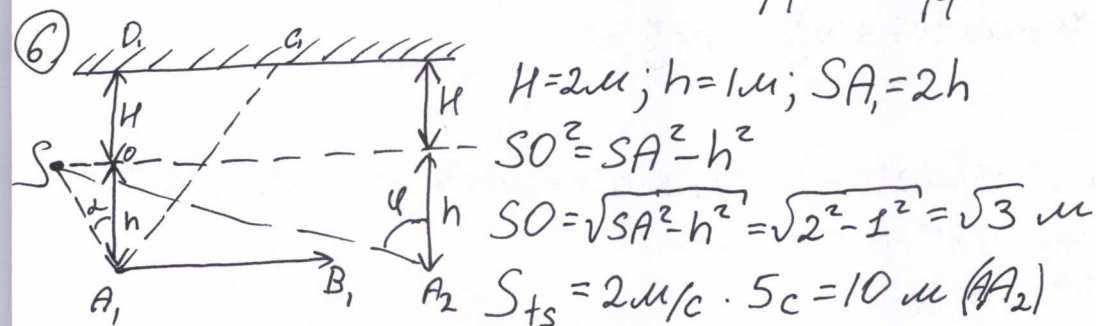 6
D₁ C₁
H H
S O
α h φ h
A₁ B₁ A₂
H=2м; h=1м; SA₁=2h
SO²=SA²-h²
SO=√SA²-h²=√2²-1²=√3 м
S_ts=2м/с · 5с=10 м (AA₂)